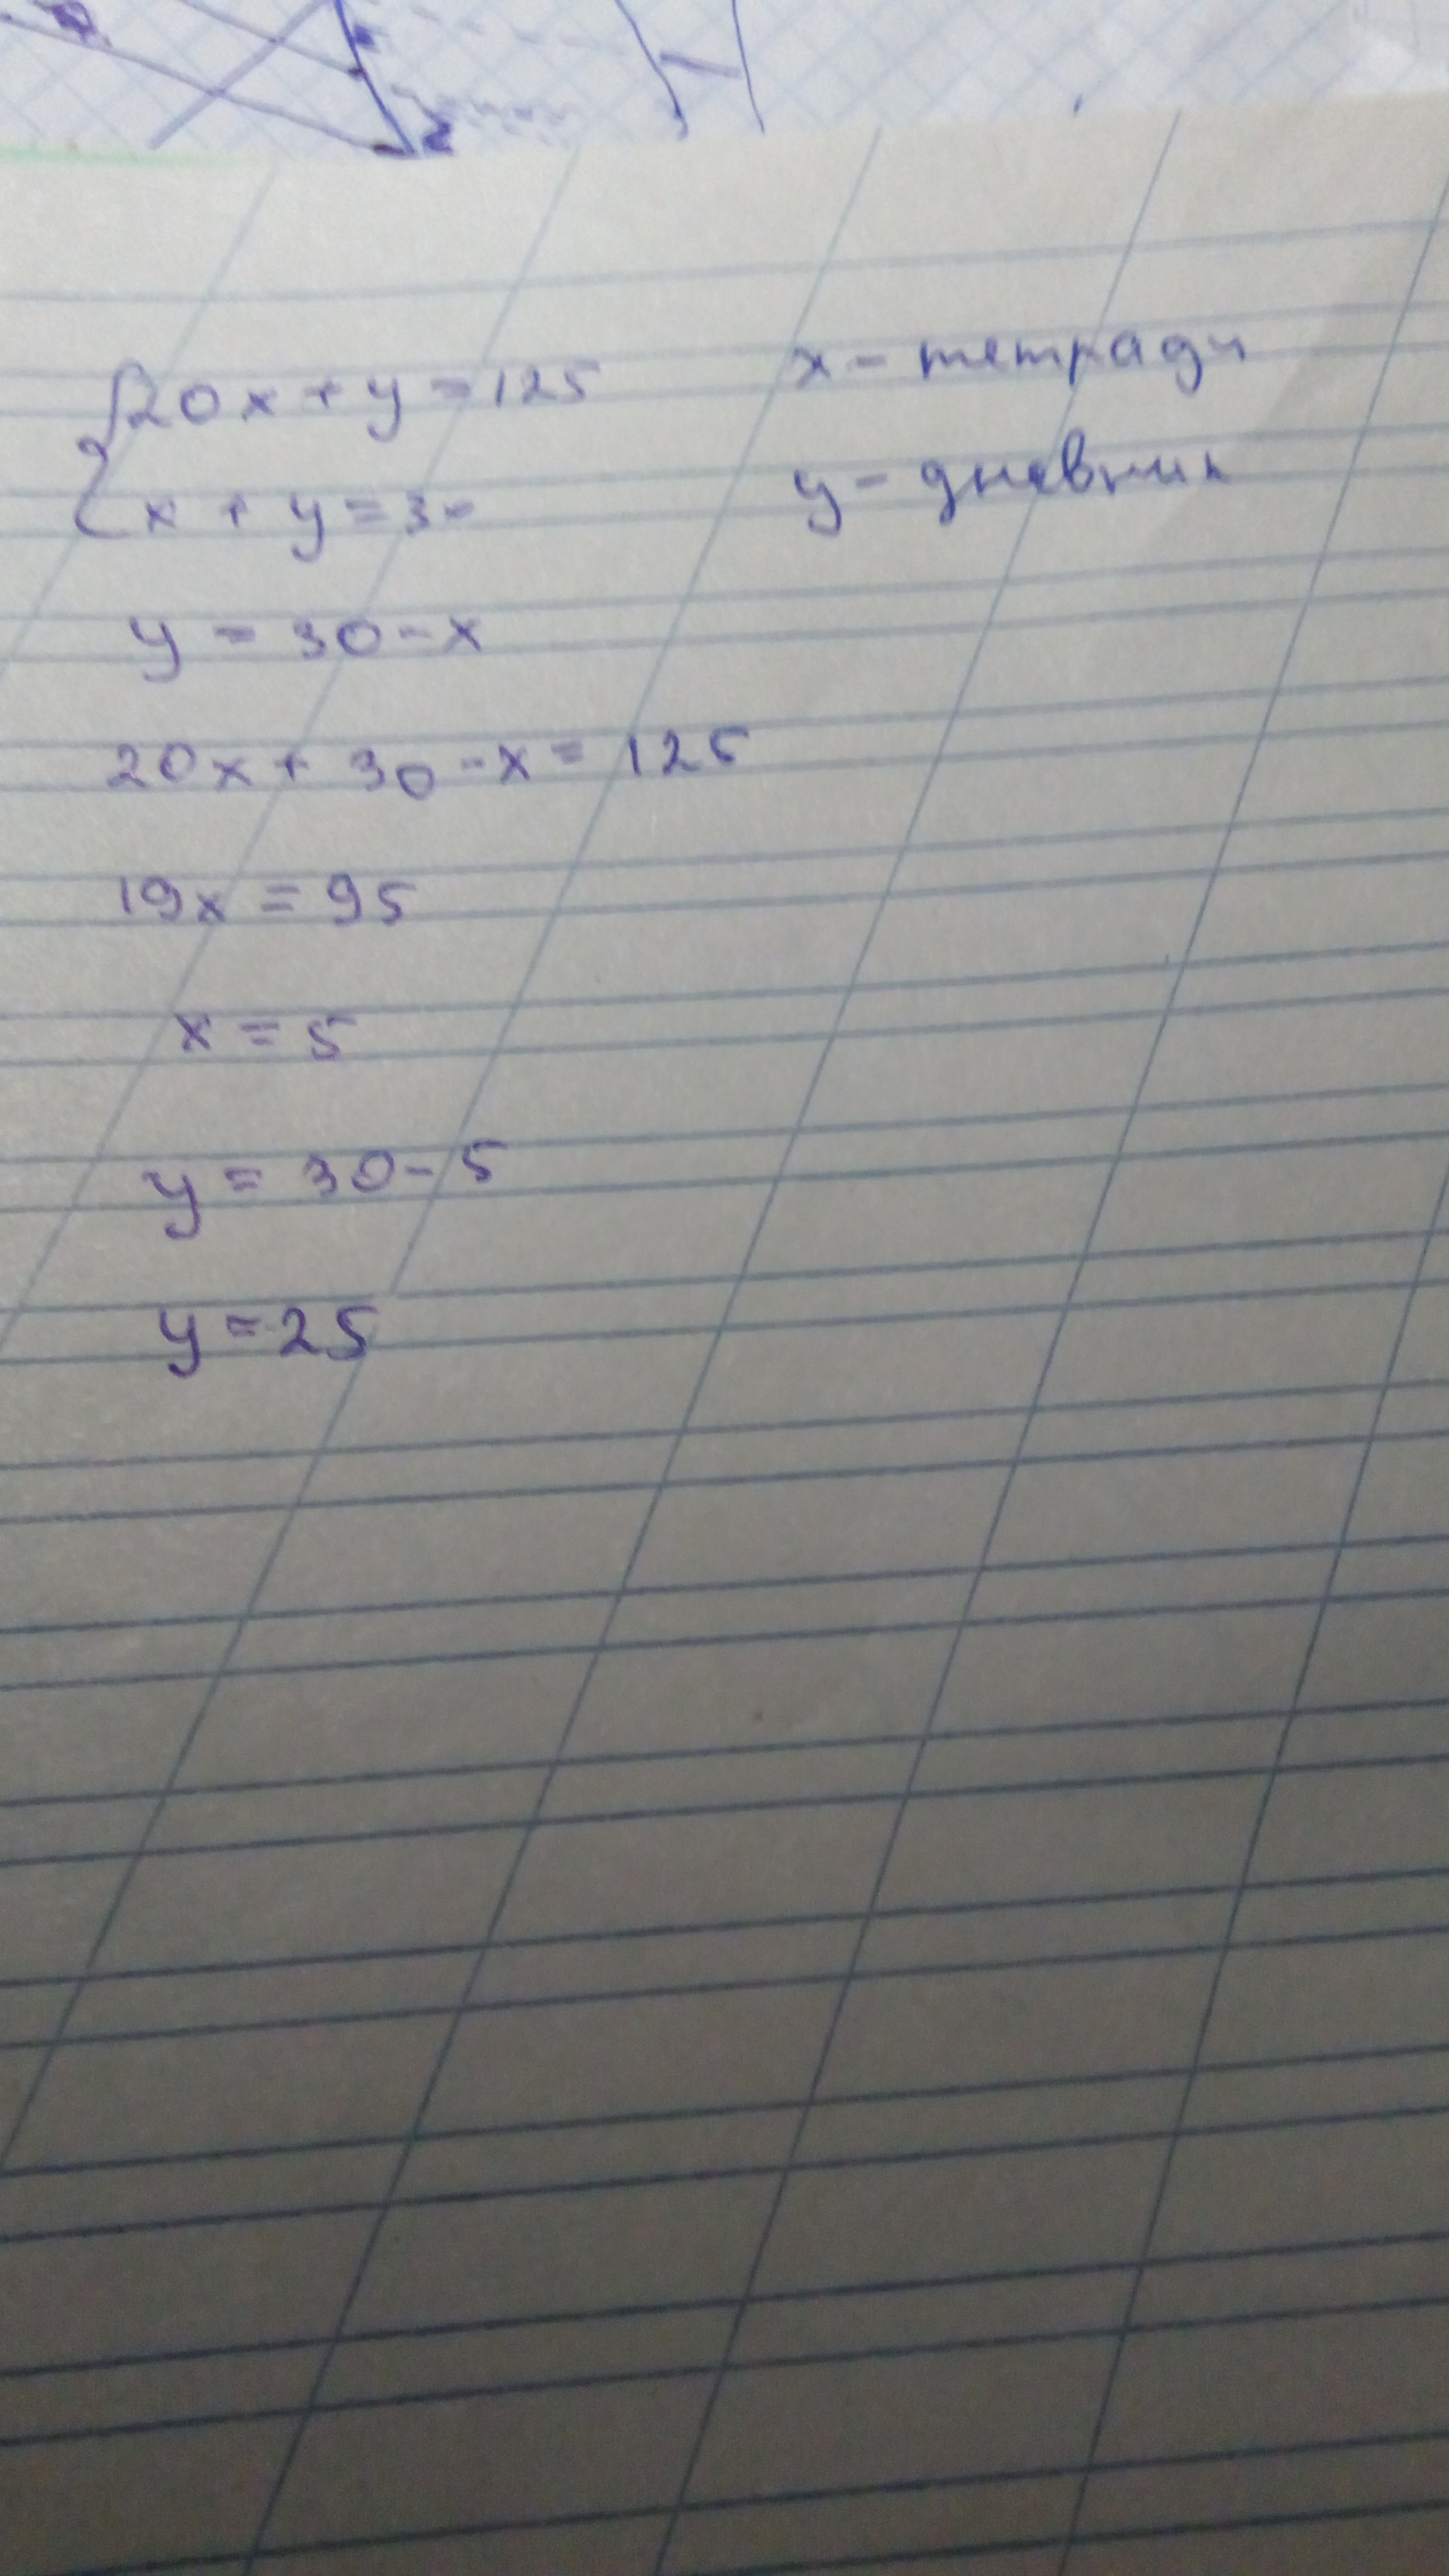 20x + y = 125
x + y = 30
x – тетради
y – дневник
y = 30 - x
20x + 30 - x = 125
19x = 95
x = 5
y = 30 - 5
y = 25